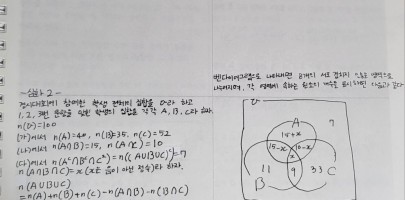 - 심화 2 -
경시대회에 참여한 학생 전체의 집합을 U라 하고
1, 2, 3번 문항을 맞힌 학생의 집합을 각각 A, B, C라 하자.
n(U)=100
(가)에서 n(A)=40, n(B)=35, n(C)=52
(나)에서 n(A∩B)=15, n(A∩C)=10
(다)에서 n(A^c∩B^c∩C^c)=n((A∪B∪C)^c)=7
n(A∩B∩C)=x (x는 음이 아닌 정수)라 하자.
n(A∪B∪C)
=n(A)+n(B)+n(C)-n(A∩B)-n(B∩C)
벤다이어그램으로 나타내면 8개의 서로 겹치지 않는 영역으로
나누어지며, 각 영역에 속하는 원소의 개수를 표시하면 다음과 같다
U
A
7
15+x
15-x
10-x
x
11
9
33
C
B